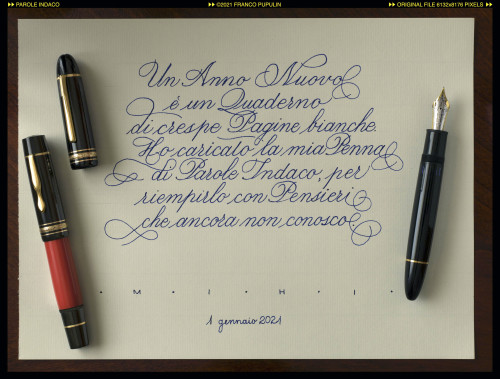 PAROLE INDACO
©2021 FRANCO PUPULIN
ORIGINAL FILE 6132x8176 PIXELS
Un Anno Nuovo
è un Quaderno
di crespe Pagine bianche.
Ho caricato la mia Penna
di Parole Indaco, per
riempirlo con Pensieri
che ancora non conosco.
• M • I • H • I •
1 gennaio 2021